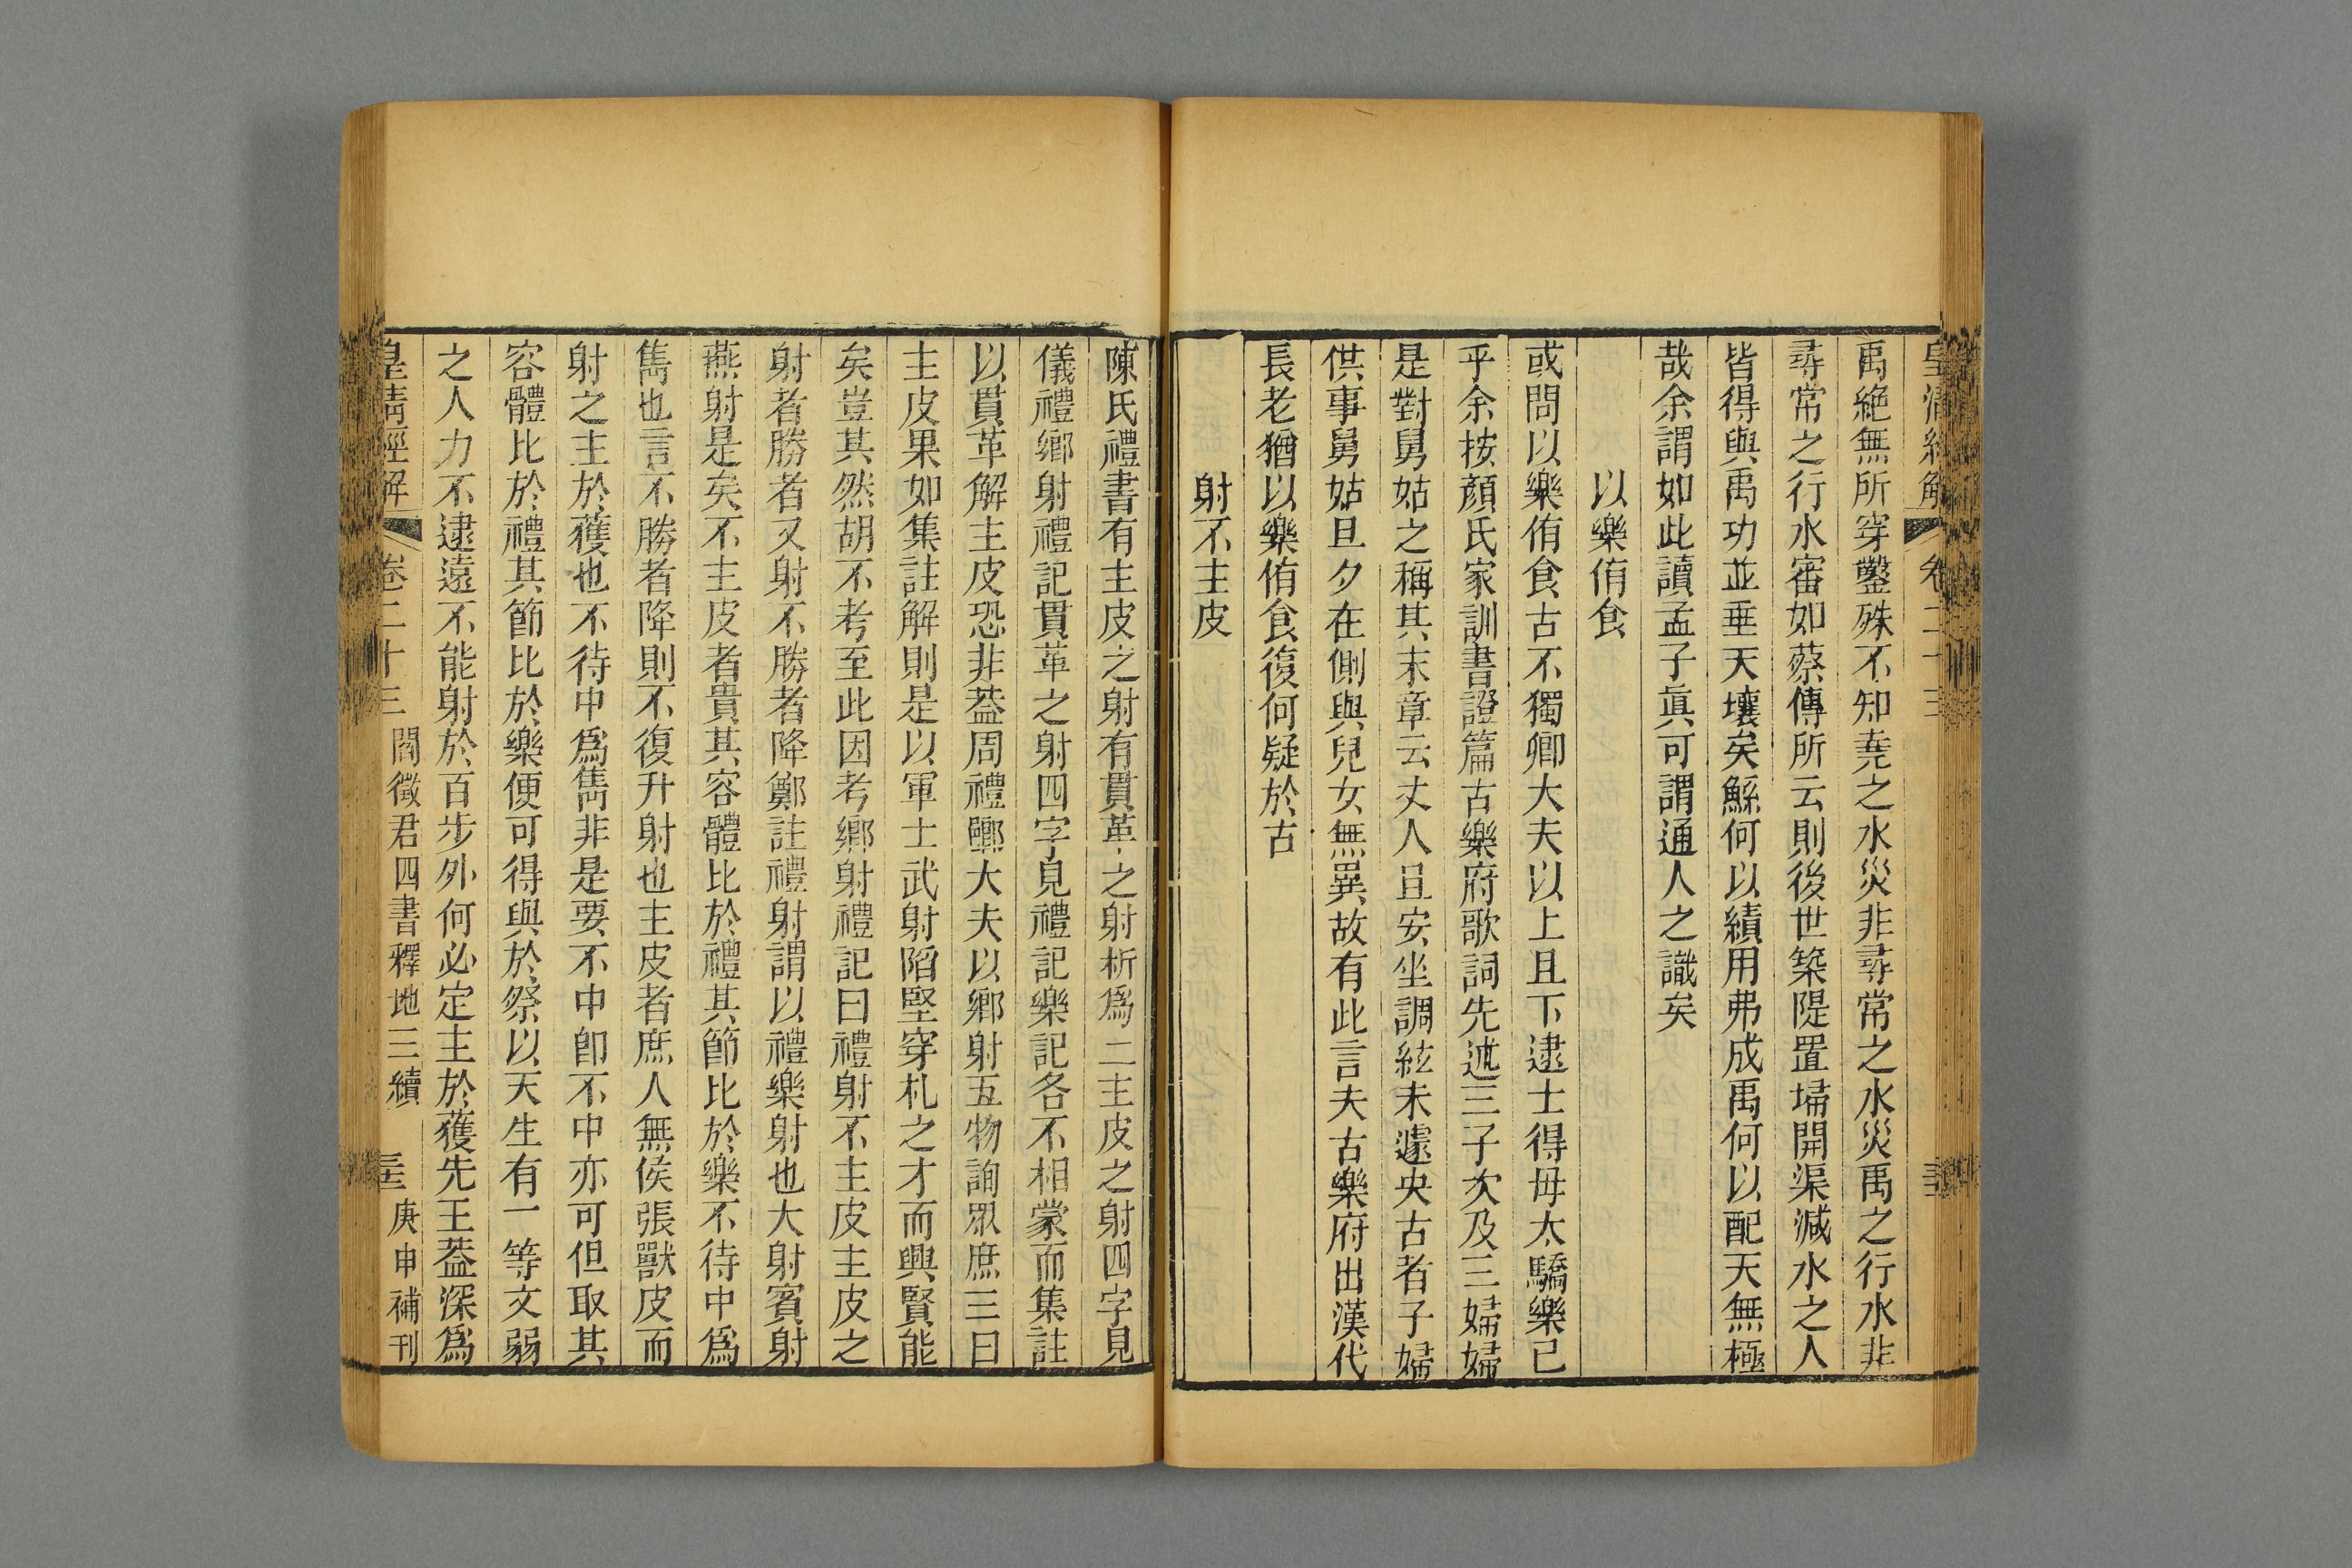 皇清經解
卷二十三
禹絶無所穿鑿殊不知堯之水災非尋常之水災禹之行水非
尋常之行水審如蔡傳所云則後世築隄置埽開渠減水之人
皆得與禹功並垂天壤矣鯀何以績用弗成禹何以配天無極
哉余謂如此讀孟子眞可謂通人之識矣
以樂侑食
或問以樂侑食古不獨卿大夫以上且下逮士得毋太驕樂已
乎余按顏氏家訓書證篇古樂府歌詞先述三子次及三婦婦
是對舅姑之稱其末章云丈人且安坐調絃未遽央古者子婦
供事舅姑旦夕在側與兒女無異故有此言夫古樂府出漢代
長老猶以樂侑食復何疑於古
射不主皮
陳氏禮書有主皮之射有貫革之射析爲二主皮之射四字見
儀禮鄉射禮記貫革之射四字見禮記樂記各不相蒙而集註
以貫革解主皮恐非葢周禮鄉大夫以鄉射五物詢眾庶三曰
主皮果如集註解則是以軍士武射陷堅穿札之才而興賢能
矣豈其然胡不考至此因考鄉射禮記曰禮射不主皮主皮之
射者勝者又射不勝者降鄭註禮射謂以禮樂射也大射賓射
燕射是矣不主皮者貴其容體比於禮其節比於樂不待中爲
雋也言不勝者降則不復升射也主皮者庶人無侯張獸皮而
射之主於獲也不待中爲雋非是要不中卽不中亦可但取其
容體比於禮其節比於樂便可得與於祭以天生有一等文弱
之人力不逮遠不能射於百步外何必定主於獲先王葢深爲
皇清經解
卷二十三
閻徵君四書釋地三續
庚申補刊